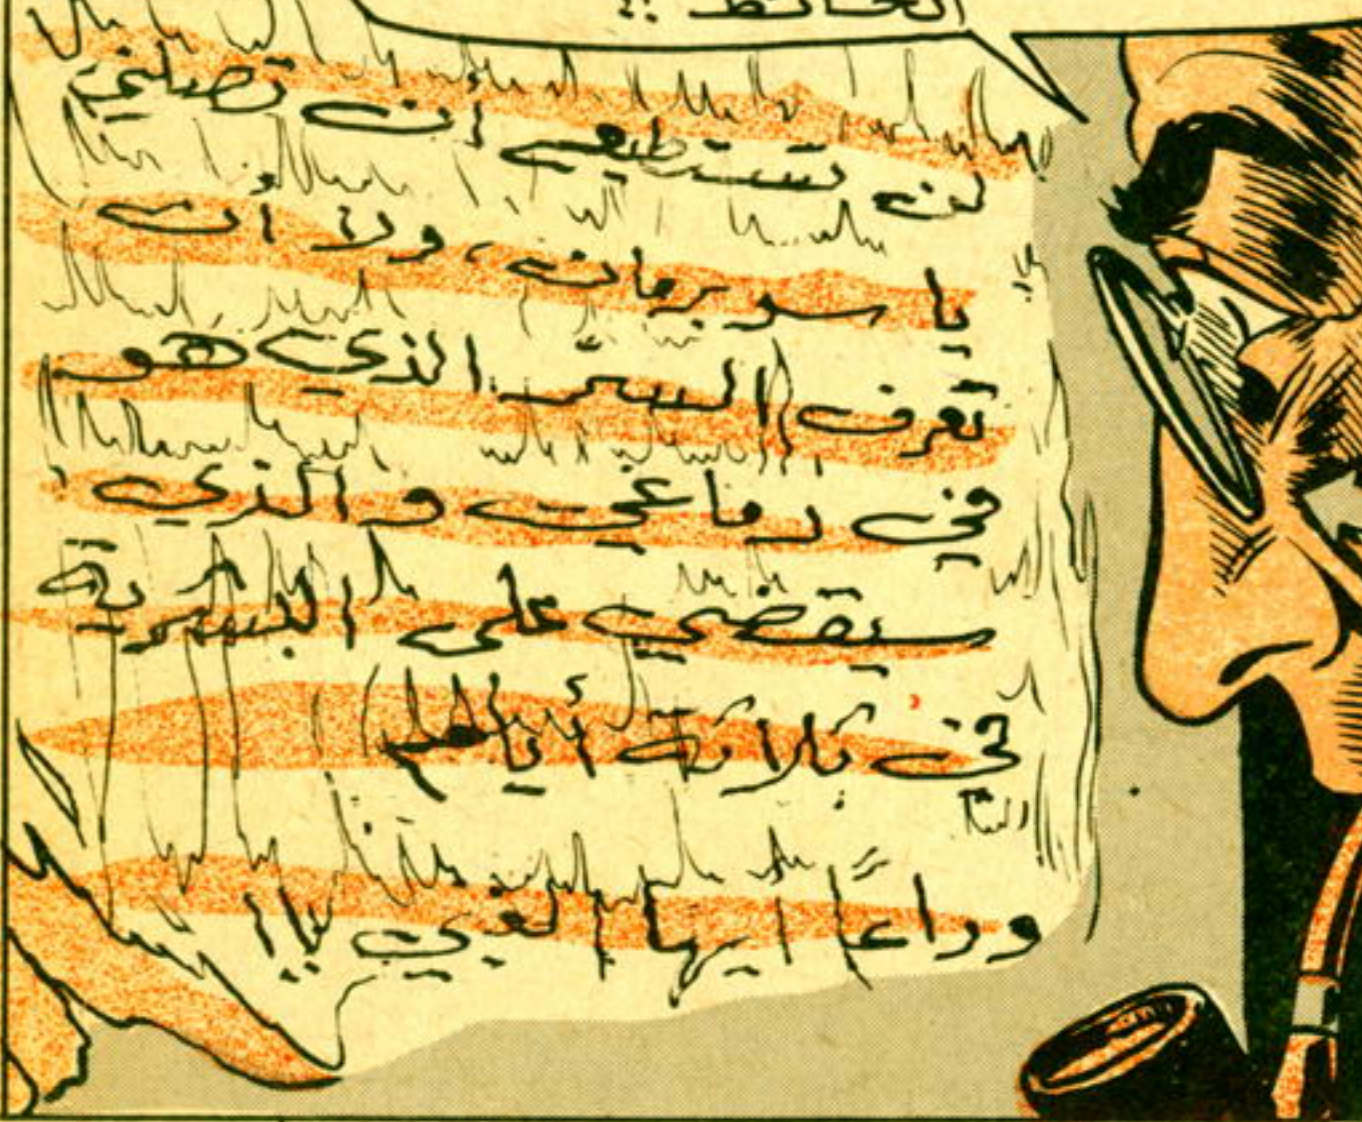 الحائط !!
لن تستطيع ان تصلني
يا سوبرمان، ولا أن
تعرف السرّ الذي هو
في دماغي والذي
سيقضي على البشرية
في ثلاثة أيام
وداعاً ايها الغبي !!